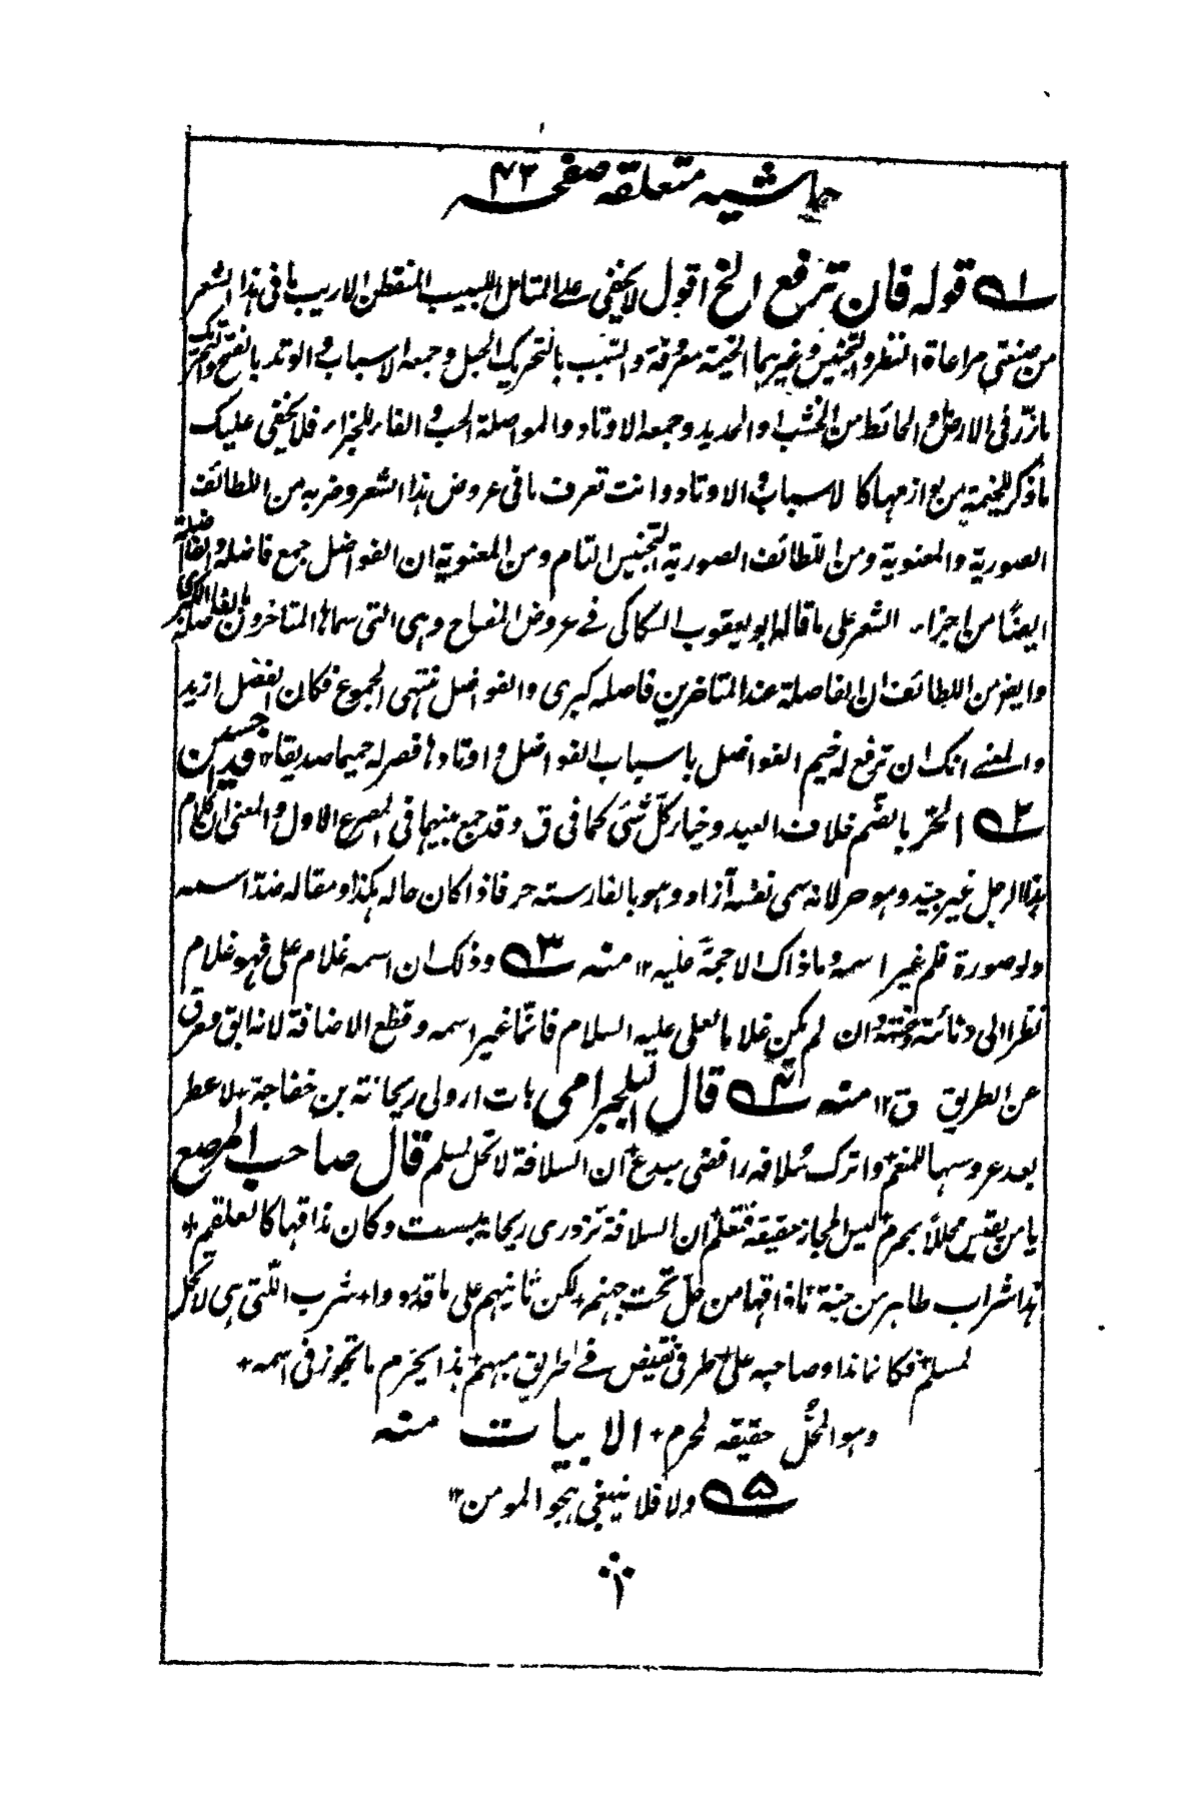 حاشيه متعلقه صفحه ۴۲
۱ قوله فان ترفع الخ اقول لا يخفى على المتامل اللبيب المتفطن الاريب ما فى هذا الشعر
من صنعتى مراعاة النظر والتجنيس وغيرهما الخيمة معروفة والسبب بالتحريك الحبل وجمعه الاسباب و الوتد بالفتح والتحريك
مارزّ فى الارض و الحائط من الخشب او الحديد وجمعه الاوتاد والمواصلة الحب و الفاء للجزاء فلا يخفى عليك
ما ذكر للخيمة من لوازمها كالاسباب و الاوتاد وانت تعرف ما فى عروض هذا الشعر وضربه من اللطائف
الصورية والمعنوية ومن اللطائف الصورية التجنيس التام ومن المعنوية ان الفواضل جمع فاضلة و الفاضلة
ايضًا من اجزاء الشعر على ما قاله ابو يعقوب السكاكى فے عروض المفتاح وهى التى سماها المتاخرون بالفاصلة الكبرى
وايضر من اللطائف ان الفاصلة عند المتاخرين فاصله كبرى والفواضل منتهى الجموع فكان الفضل ازيد
والمعنے انك ان ترفع له خيم الفواضل باسباب الفواضل و اوتادها فصر له حميما صديقا ۱۲ قدير حسين
۲ الحُرّ بالضم خلاف العبد وخيار كلّ شئ كما فى ق وقد جمع بينهما فى المصرع الاول و المعنى ان كلام
هذا الرجل غير جيّد وهو حر لانه سمى نفسه آزاد وهو بالفارسته حر فاذا كان حاله هكذا ومقاله ضدّ اسمه
ولو صورة فلم غير اسمه و ما ذاك الا حجة عليه ۱۲ منه ۳ وذلك ان اسمه غلام على فهو غلام
نظرا الى دنائته وخسته و ان لم يكن غلاما لعلى عليه السلام فانّما غير اسمه وقطع الاضافة لانه ابق و مرق
عن الطريق ق ۱۲ منه ۴ قال البلجرامى هات ارولى ريحانة بن خفاجة + لا عطر
بعد عروسها للمنعم + واترك سُلافه رافضى مبدع + ان السلافة لا تحل لمسلم قال صاحب المرصع
يا من يقيس محللاً بمحرم + ليس المجاز حقيقة فتعلم + ان السلافة تزدرى ريحانة يبست وكان مذاقها كالعلقم +
هذا شراب طاهر من جنة ما ذاقها من حلّ تحت جهنم + لكن ثانيهم على ما قدروا + شرب اللتى هى لا تحل
لمسلم + فكانما ذا وصاحبه على + طرفى نقيض فے طريق مبهم + هذا يحرم ما تجوز فى اسمه +
وهو المحلُّ حقيقه لمحرم + الابيات منه
۵ ولا فلا ينبغى هجو المومن ۱۲